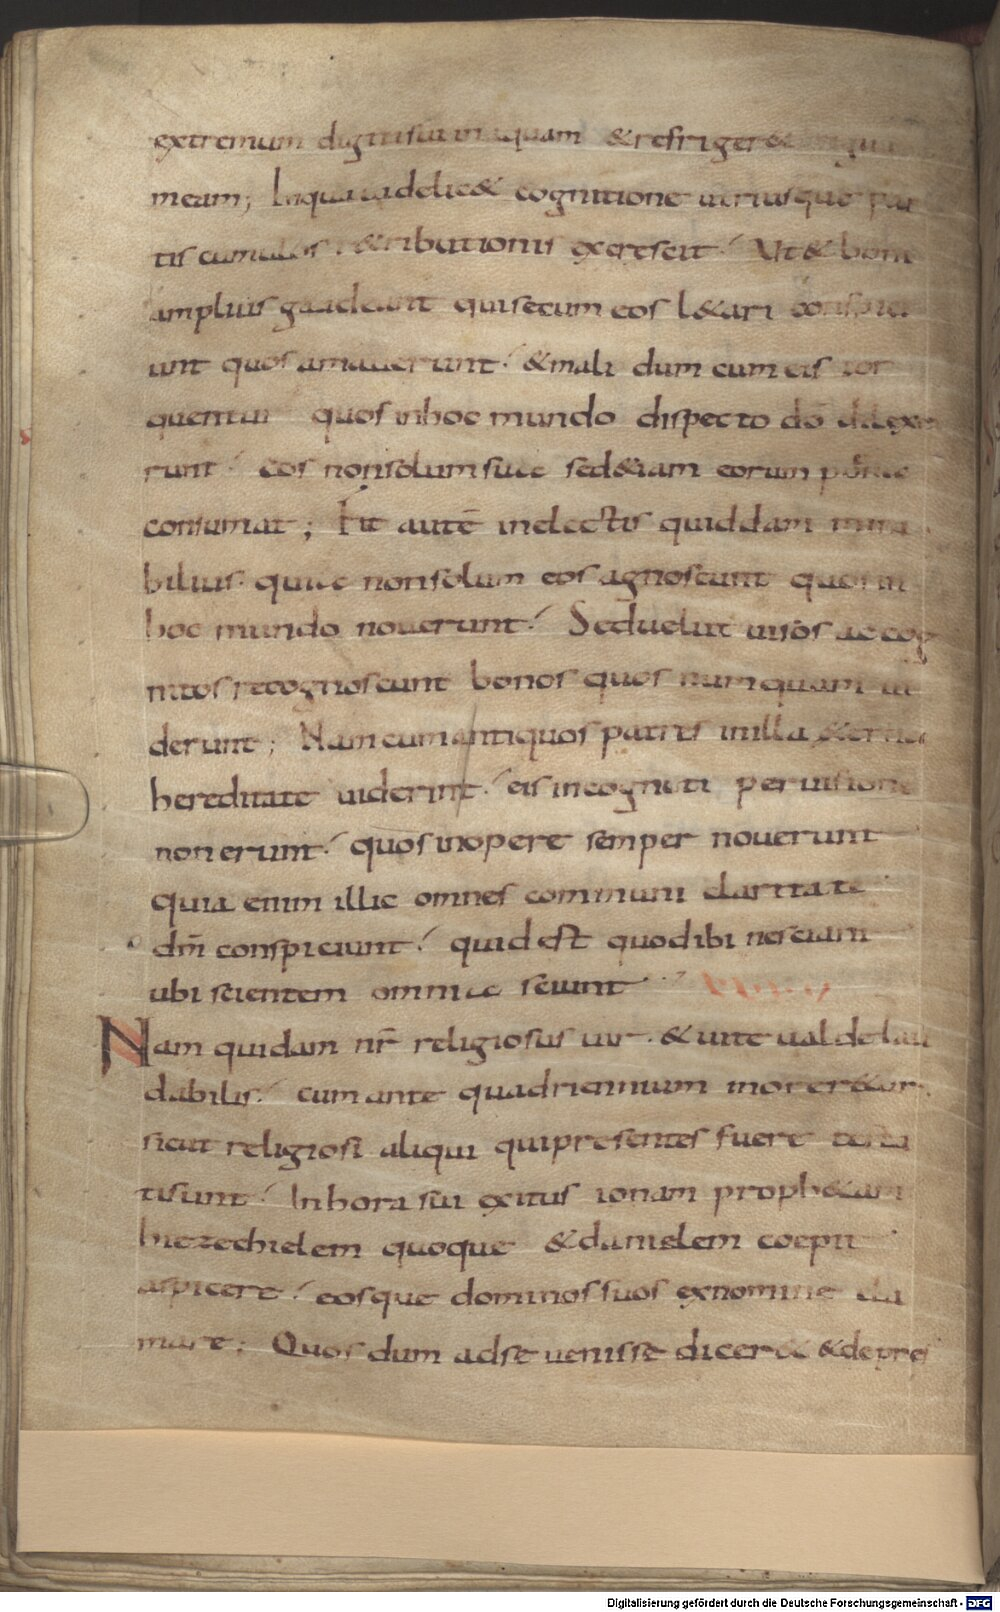 extremum digiti sui in aquam & refriger& lingua
meam; In qua uidelic& cognitione utriusque par
tis cumulus r&ributionis excrescit. Ut & boni
amplius gaudeant qui secum eos l&ari conspici
unt quos amauerunt. & mali dum cum eis tor
quentur quos in hoc mundo dispecto dō dilexe
runt. eos non solum sua sed &iam eorum poena
consumat; Fit autē in electis quiddam mira
bilius. quia non solum eos agnoscunt quos in
hoc mundo nouerunt. Sed uelut uisos ac cog
nitos recognoscunt bonos quos numquam ui
derunt; Nam cum antiquos patres in illa &erna
hereditate uiderint. eis incogniti per uisione
non erunt. quos in opere semper nouerunt
quia enim illic omnes communi claritate
dm̄ conspiciunt. quid est quod ibi nesciant
ubi scientem omnia sciunt
Nam quidam nr̄ religiosus uir. & uite ualde lau
dabilis. cum ante quadriennium morer&ur.
sicut religiosi aliqui qui presentes fuere testa
ti sunt. In hora sui exitus ionam proph&am
hiezechielem quoque & danielem coepit
aspicere. eosque dominos suos ex nomine cla
mare; Quos dum ad se uenisse dicer& & depres
Digitalisierung gefördert durch die Deutsche Forschungsgemeinschaft - DFG